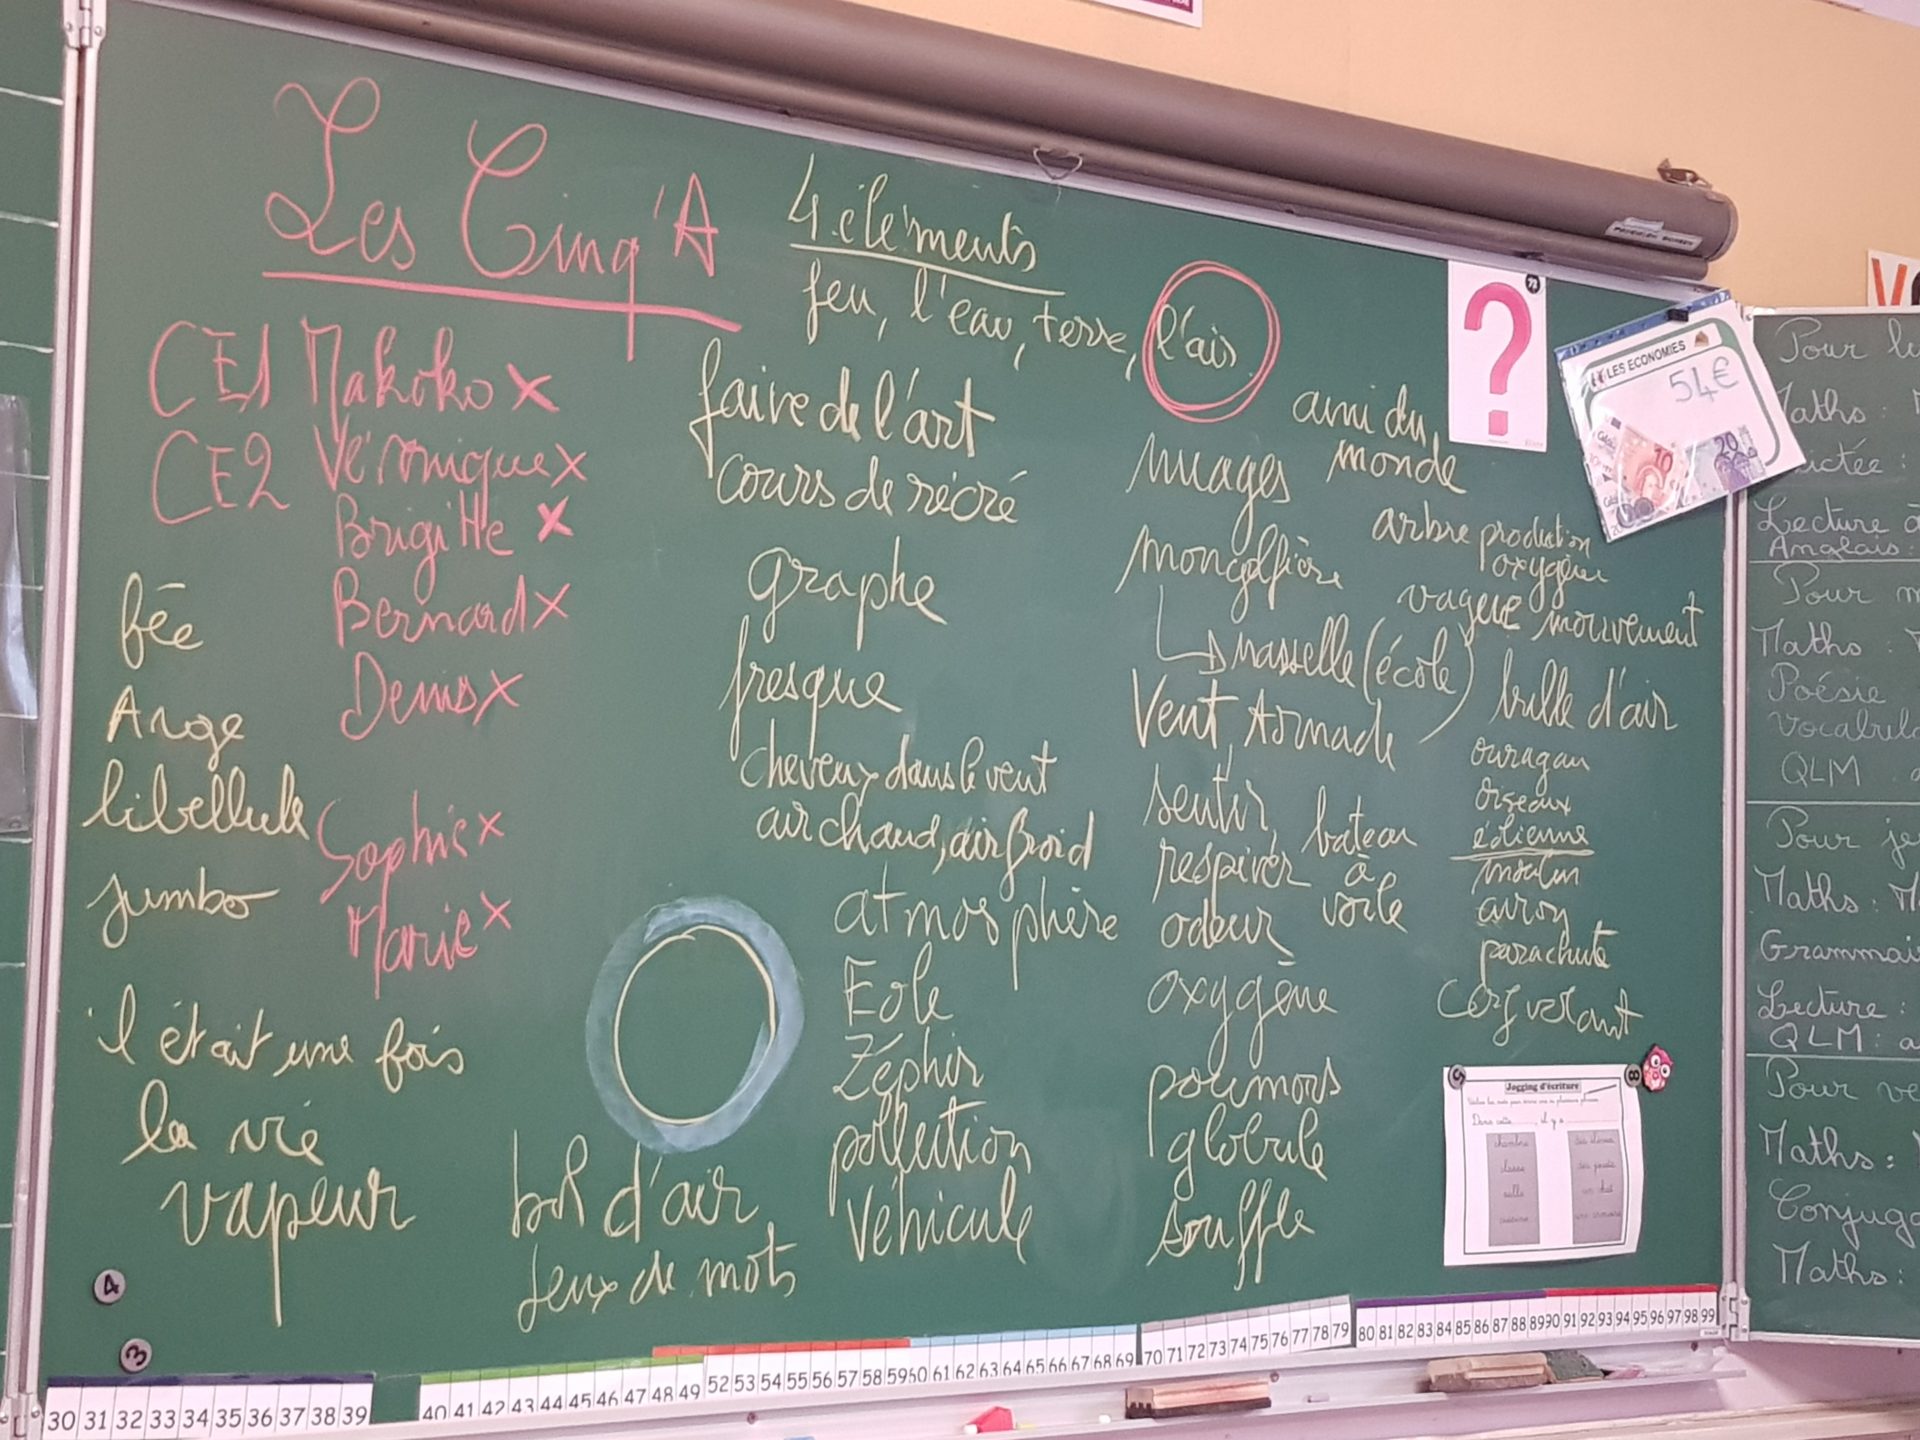 Les Cinq 'A
CE1 Makoko x
CE2 Véronique x
Brigitte x
Bernard x
Denis x
Sophie x
Marie x
fée
Ange
libellule
jumbo
il était une fois
la vie
vapeur
4 éléments
feu, l'eau, terre, l'air
faire de l'art
cours de récré
graphe
fresque
cheveux dans le vent
air chaud, air froid
atmosphère
Eole
Zéphir
pollution
Véhicule
bol d'air
jeux de mots
nuages
mongolfière
nasselle (école)
Vent, Armade
sentir,
respirer
odeur
bateau
à
voile
oxygène
poumons
globule
souffle
ami du
monde
arbre production
oxygène
vague mouvement
bulle d'air
ouragan
oiseaux
éolienne
moulin
avion
parachute
Cerf volant
?
LES ECONOMIES
54€
10
20
Jogging d'écriture
Pour
Maths :
ctée :
Lecture
Anglais :
Pour
Maths :
Poésie
QLM
Pour je
Maths :
Lecture :
QLM :
Pour ve
Maths :
Maths :
4
3
30 31 32 33 34 35 36 37 38 39
40 41 42 43 44 45 46 47 48 49
52 53 54 55 56 57 58 59 60 61 62 63 64 65 66 67 68 69
70 71 72 73 74 75 76 77 78 79
80 81 82 83 84 85 86 87 88 89 90 91 92 93 94 95 96 97 98 99